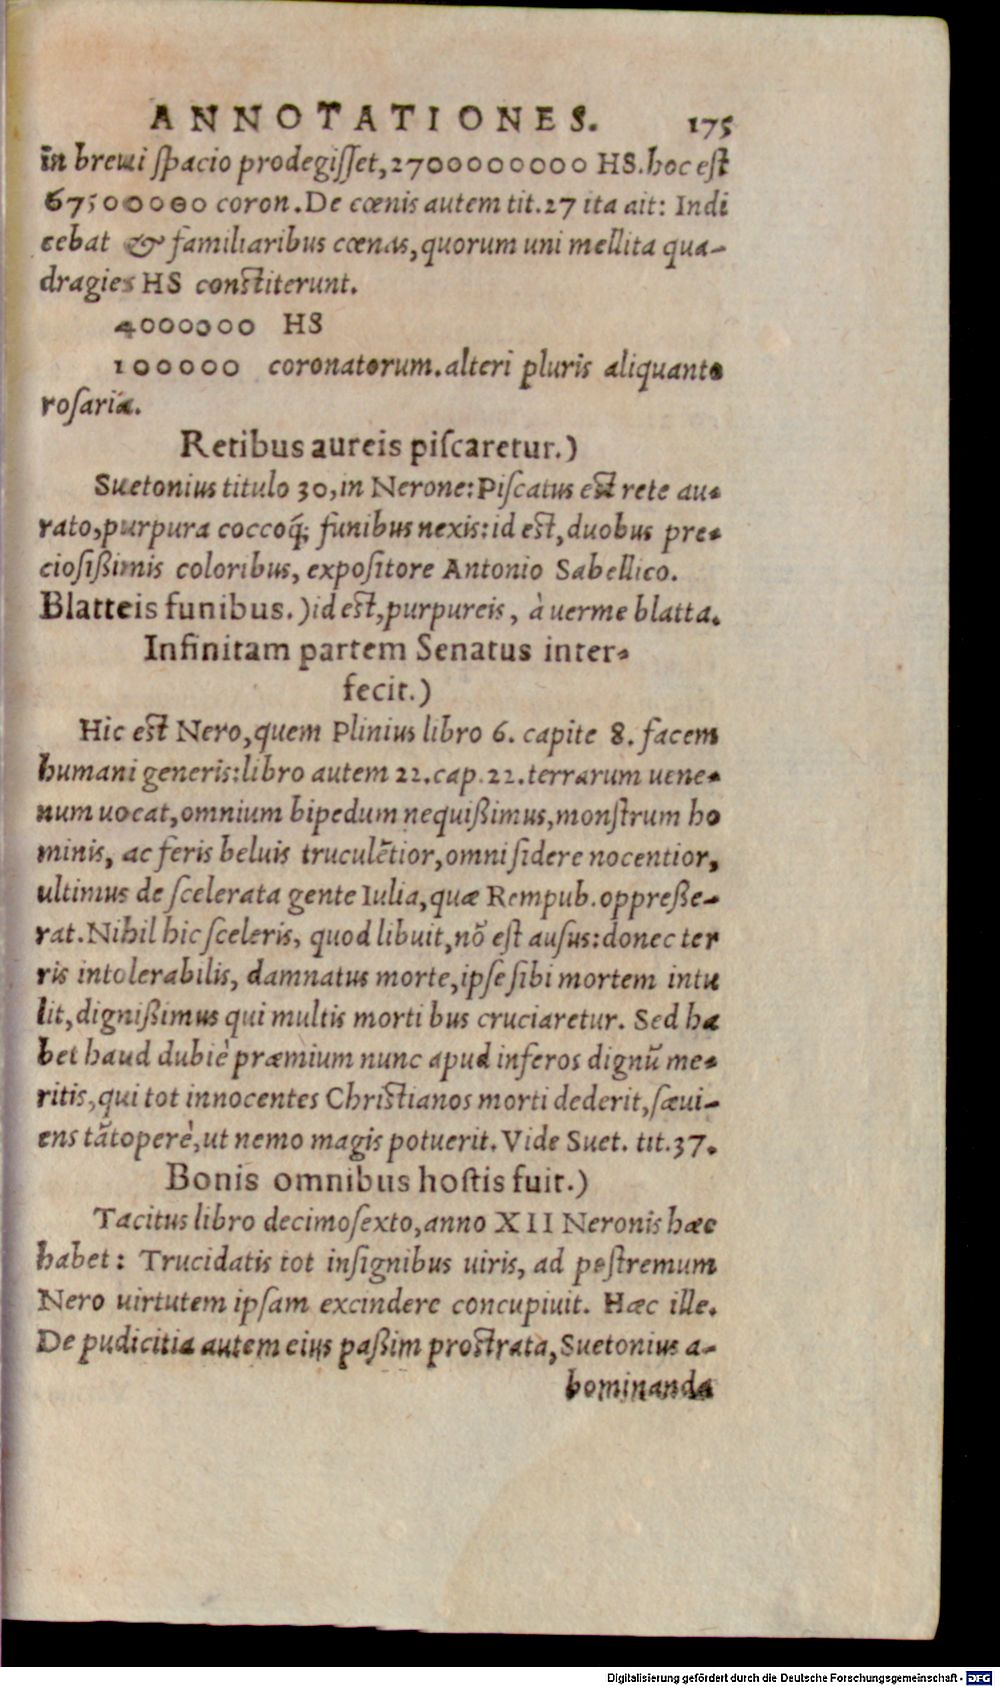 ANNOTATIONES. 175
in breui ſpacio prodegiſſet, 2700000000 HS. hoc eſt
67500000 coron. De cœnis autem tit. 27 ita ait: Indi
cebat & familiaribus cœnas, quorum uni mellita qua-
dragies HS conſtiterunt.
4000000 HS
100000 coronatorum. alteri pluris aliquanto
roſaria.
Retibus aureis piſcaretur.)
Suetonius titulo 30, in Nerone: Piſcatus eſt rete au-
rato, purpura coccoq́; funibus nexis: id eſt, duobus pre-
cioſißimis coloribus, expoſitore Antonio Sabellico.
Blatteis funibus.) id eſt, purpureis, à uerme blatta.
Infinitam partem Senatus inter-
fecit.)
Hic eſt Nero, quem Plinius libro 6. capite 8. facem
humani generis: libro autem 22. cap. 22. terrarum uene-
num uocat, omnium bipedum nequißimus, monſtrum ho
minis, ac feris beluis truculẽtior, omni ſidere nocentior,
ultimus de ſcelerata gente Iulia, quæ Rempub. oppreße-
rat. Nihil hic ſceleris, quod libuit, nõ eſt auſus: donec ter
ris intolerabilis, damnatus morte, ipſe ſibi mortem intu
lit, dignißimus qui multis morti bus cruciaretur. Sed ha
bet haud dubiè præmium nunc apud inferos dignũ me-
ritis, qui tot innocentes Chriſtianos morti dederit, ſæui-
ens tãtoperè, ut nemo magis potuerit. Vide Suet. tit. 37.
Bonis omnibus hoſtis fuit.)
Tacitus libro decimoſexto, anno XII Neronis hæc
habet: Trucidatis tot inſignibus uiris, ad poſtremum
Nero uirtutem ipſam excindere concupiuit. Hæc ille.
De pudicitia autem eius paßim proſtrata, Suetonius a-
bominanda
Digitalisierung gefördert durch die Deutsche Forschungsgemeinschaft - DFG